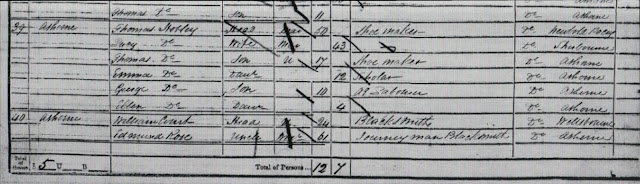 Thomas Do Son 11 Do Ashorne
39 Ashorne Thomas Hobley Head Mar 50 Shoe maker Do Newbold Pacey
Lucy Do Wife Mar 43 Do Sherbourne
Thomas Do Son U 17 Shoe maker Do Ashorne
Emma Do Daur 12 Scholar Do Ashorne
George Do Son 10 Ag Labourer Do Ashorne
Ellen Do Daur 4 Do Ashorne
40 Ashorne William Court Head 24 Blacksmith Do Wellesbourne
Edmund Rose Uncle 61 Journeyman Blacksmith Do Ashorne
Total of Houses I 5 U B Total of Persons 12 7